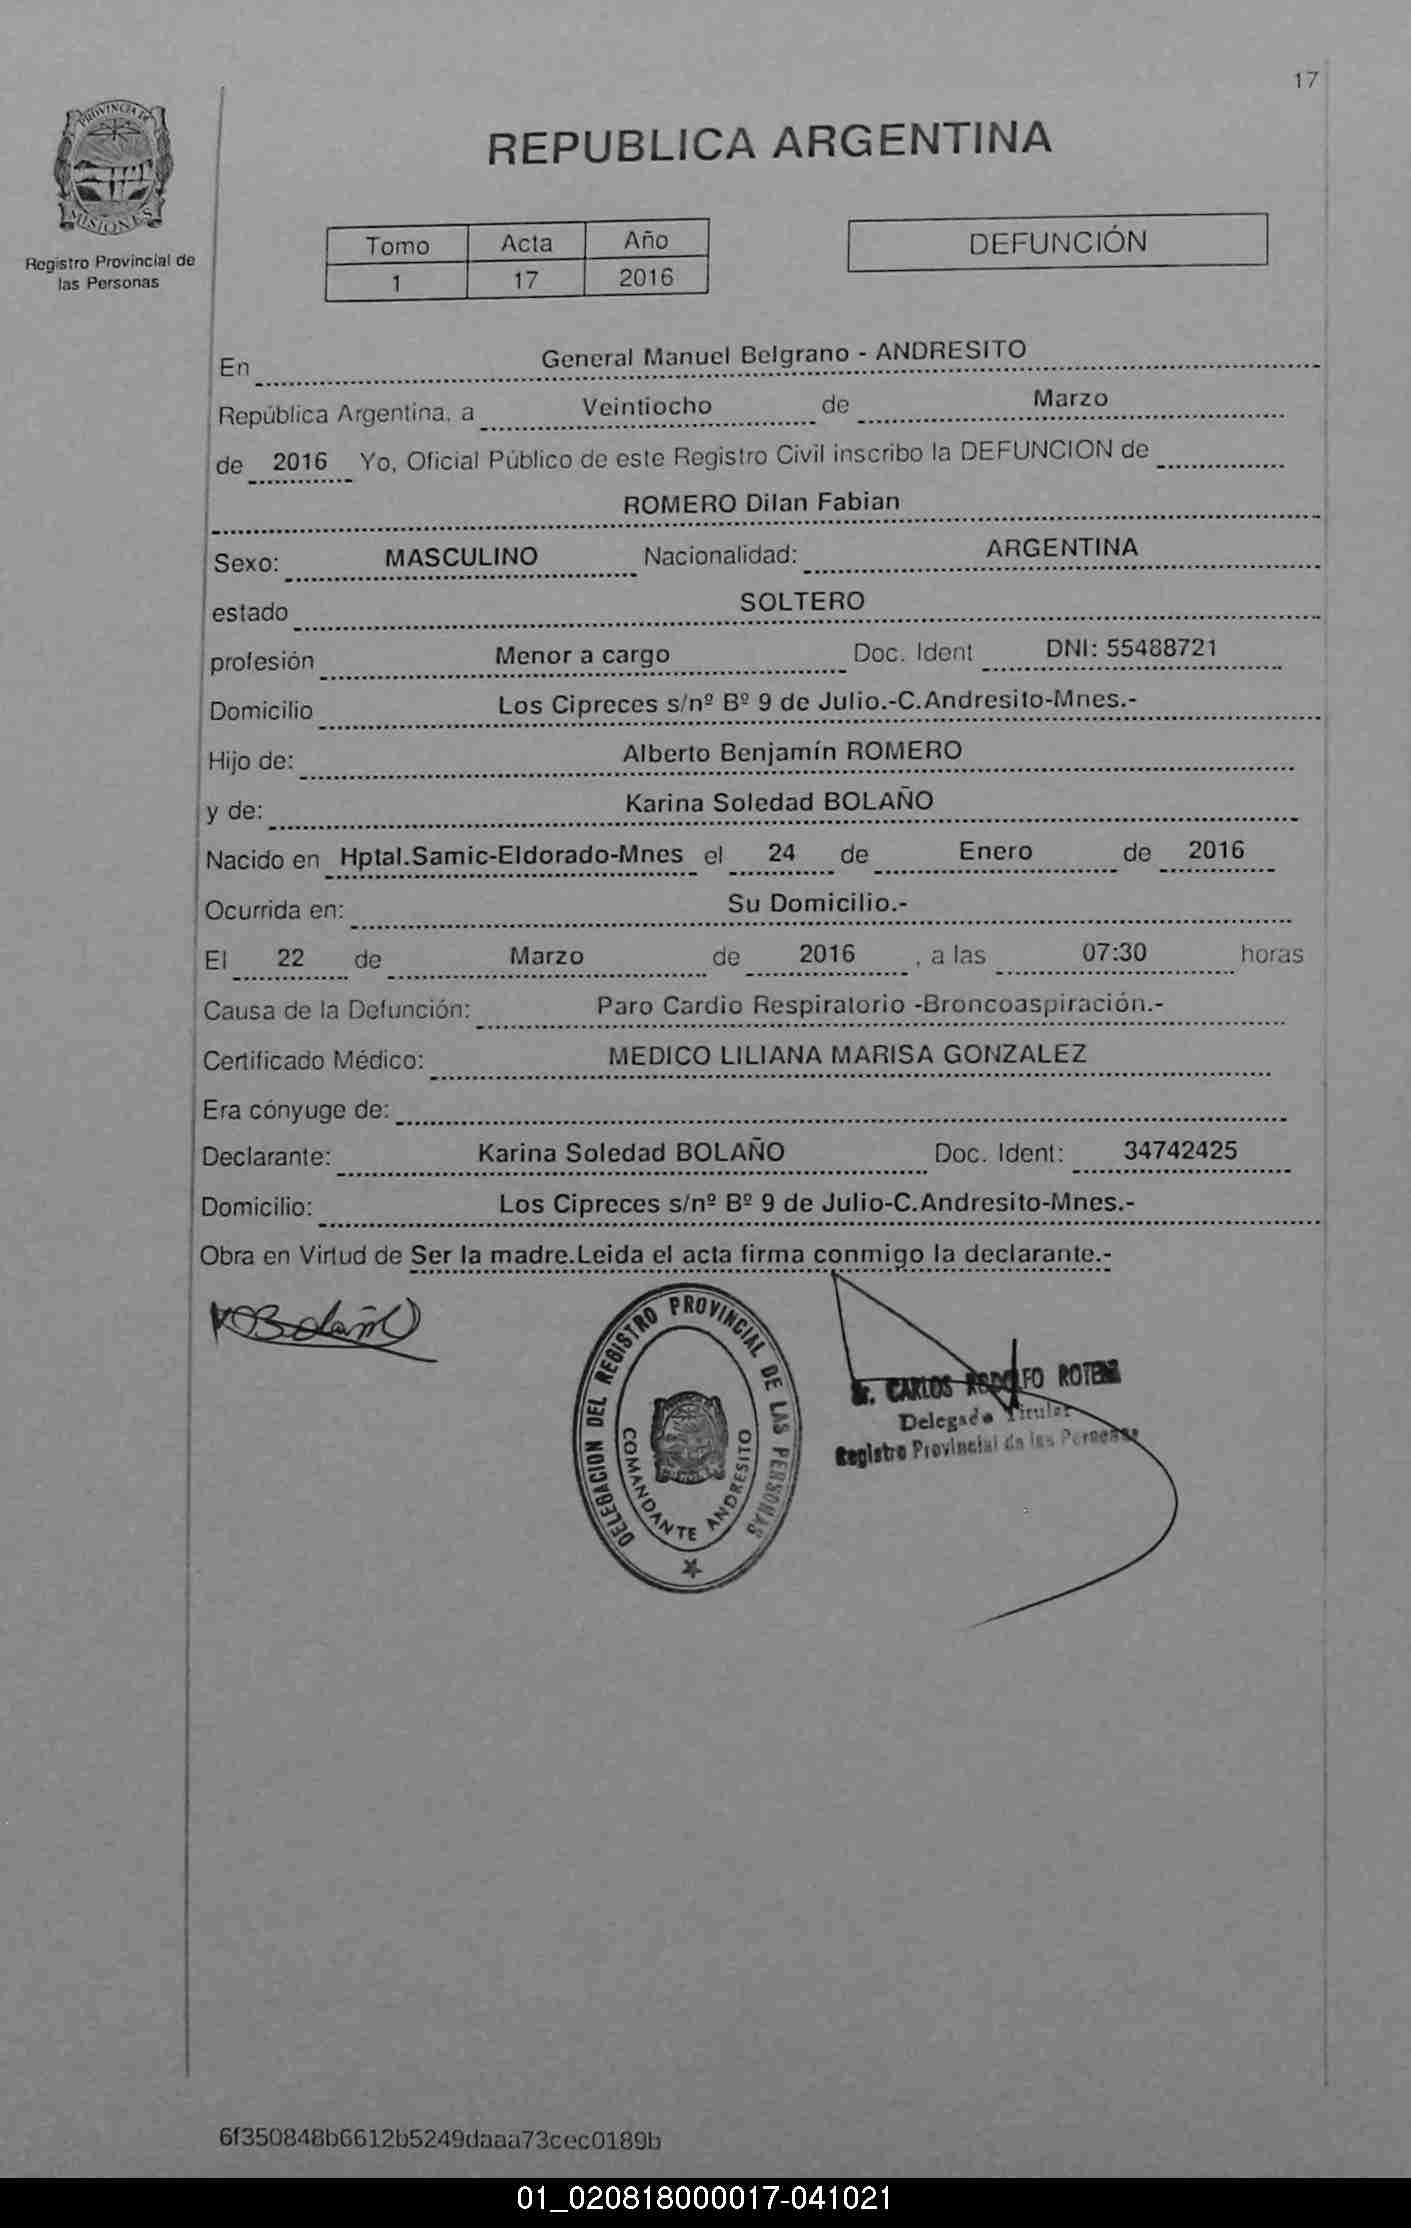 17
PROVINCIA DE
MISIONES
Registro Provincial de
las Personas
REPUBLICA ARGENTINA
Tomo Acta Año
1 17 2016
DEFUNCIÓN
En General Manuel Belgrano - ANDRESITO
República Argentina, a Veintiocho de Marzo
de 2016 Yo, Oficial Público de este Registro Civil inscribo la DEFUNCION de
ROMERO Dilan Fabian
Sexo: MASCULINO Nacionalidad: ARGENTINA
estado SOLTERO
profesión Menor a cargo Doc. Ident DNI: 55488721
Domicilio Los Cipreces s/nº Bº 9 de Julio.-C.Andresito-Mnes.-
Hijo de: Alberto Benjamín ROMERO
y de: Karina Soledad BOLAÑO
Nacido en Hptal.Samic-Eldorado-Mnes el 24 de Enero de 2016
Ocurrida en: Su Domicilio.-
El 22 de Marzo de 2016 , a las 07:30 horas
Causa de la Defunción: Paro Cardio Respiratorio -Broncoaspiración.-
Certificado Médico: MEDICO LILIANA MARISA GONZALEZ
Era cónyuge de:
Declarante: Karina Soledad BOLAÑO Doc. Ident: 34742425
Domicilio: Los Cipreces s/nº Bº 9 de Julio-C.Andresito-Mnes.-
Obra en Virtud de Ser la madre.Leida el acta firma conmigo la declarante.-
Bolaño
DELEGACION DEL REGISTRO PROVINCIAL DE LAS PERSONAS
COMANDANTE ANDRESITO
CARLOS RODOLFO
Delegado Titular
Registro Provincial de las Personas
6f350848b6612b5249daaa73cec0189b
01_020818000017-041021